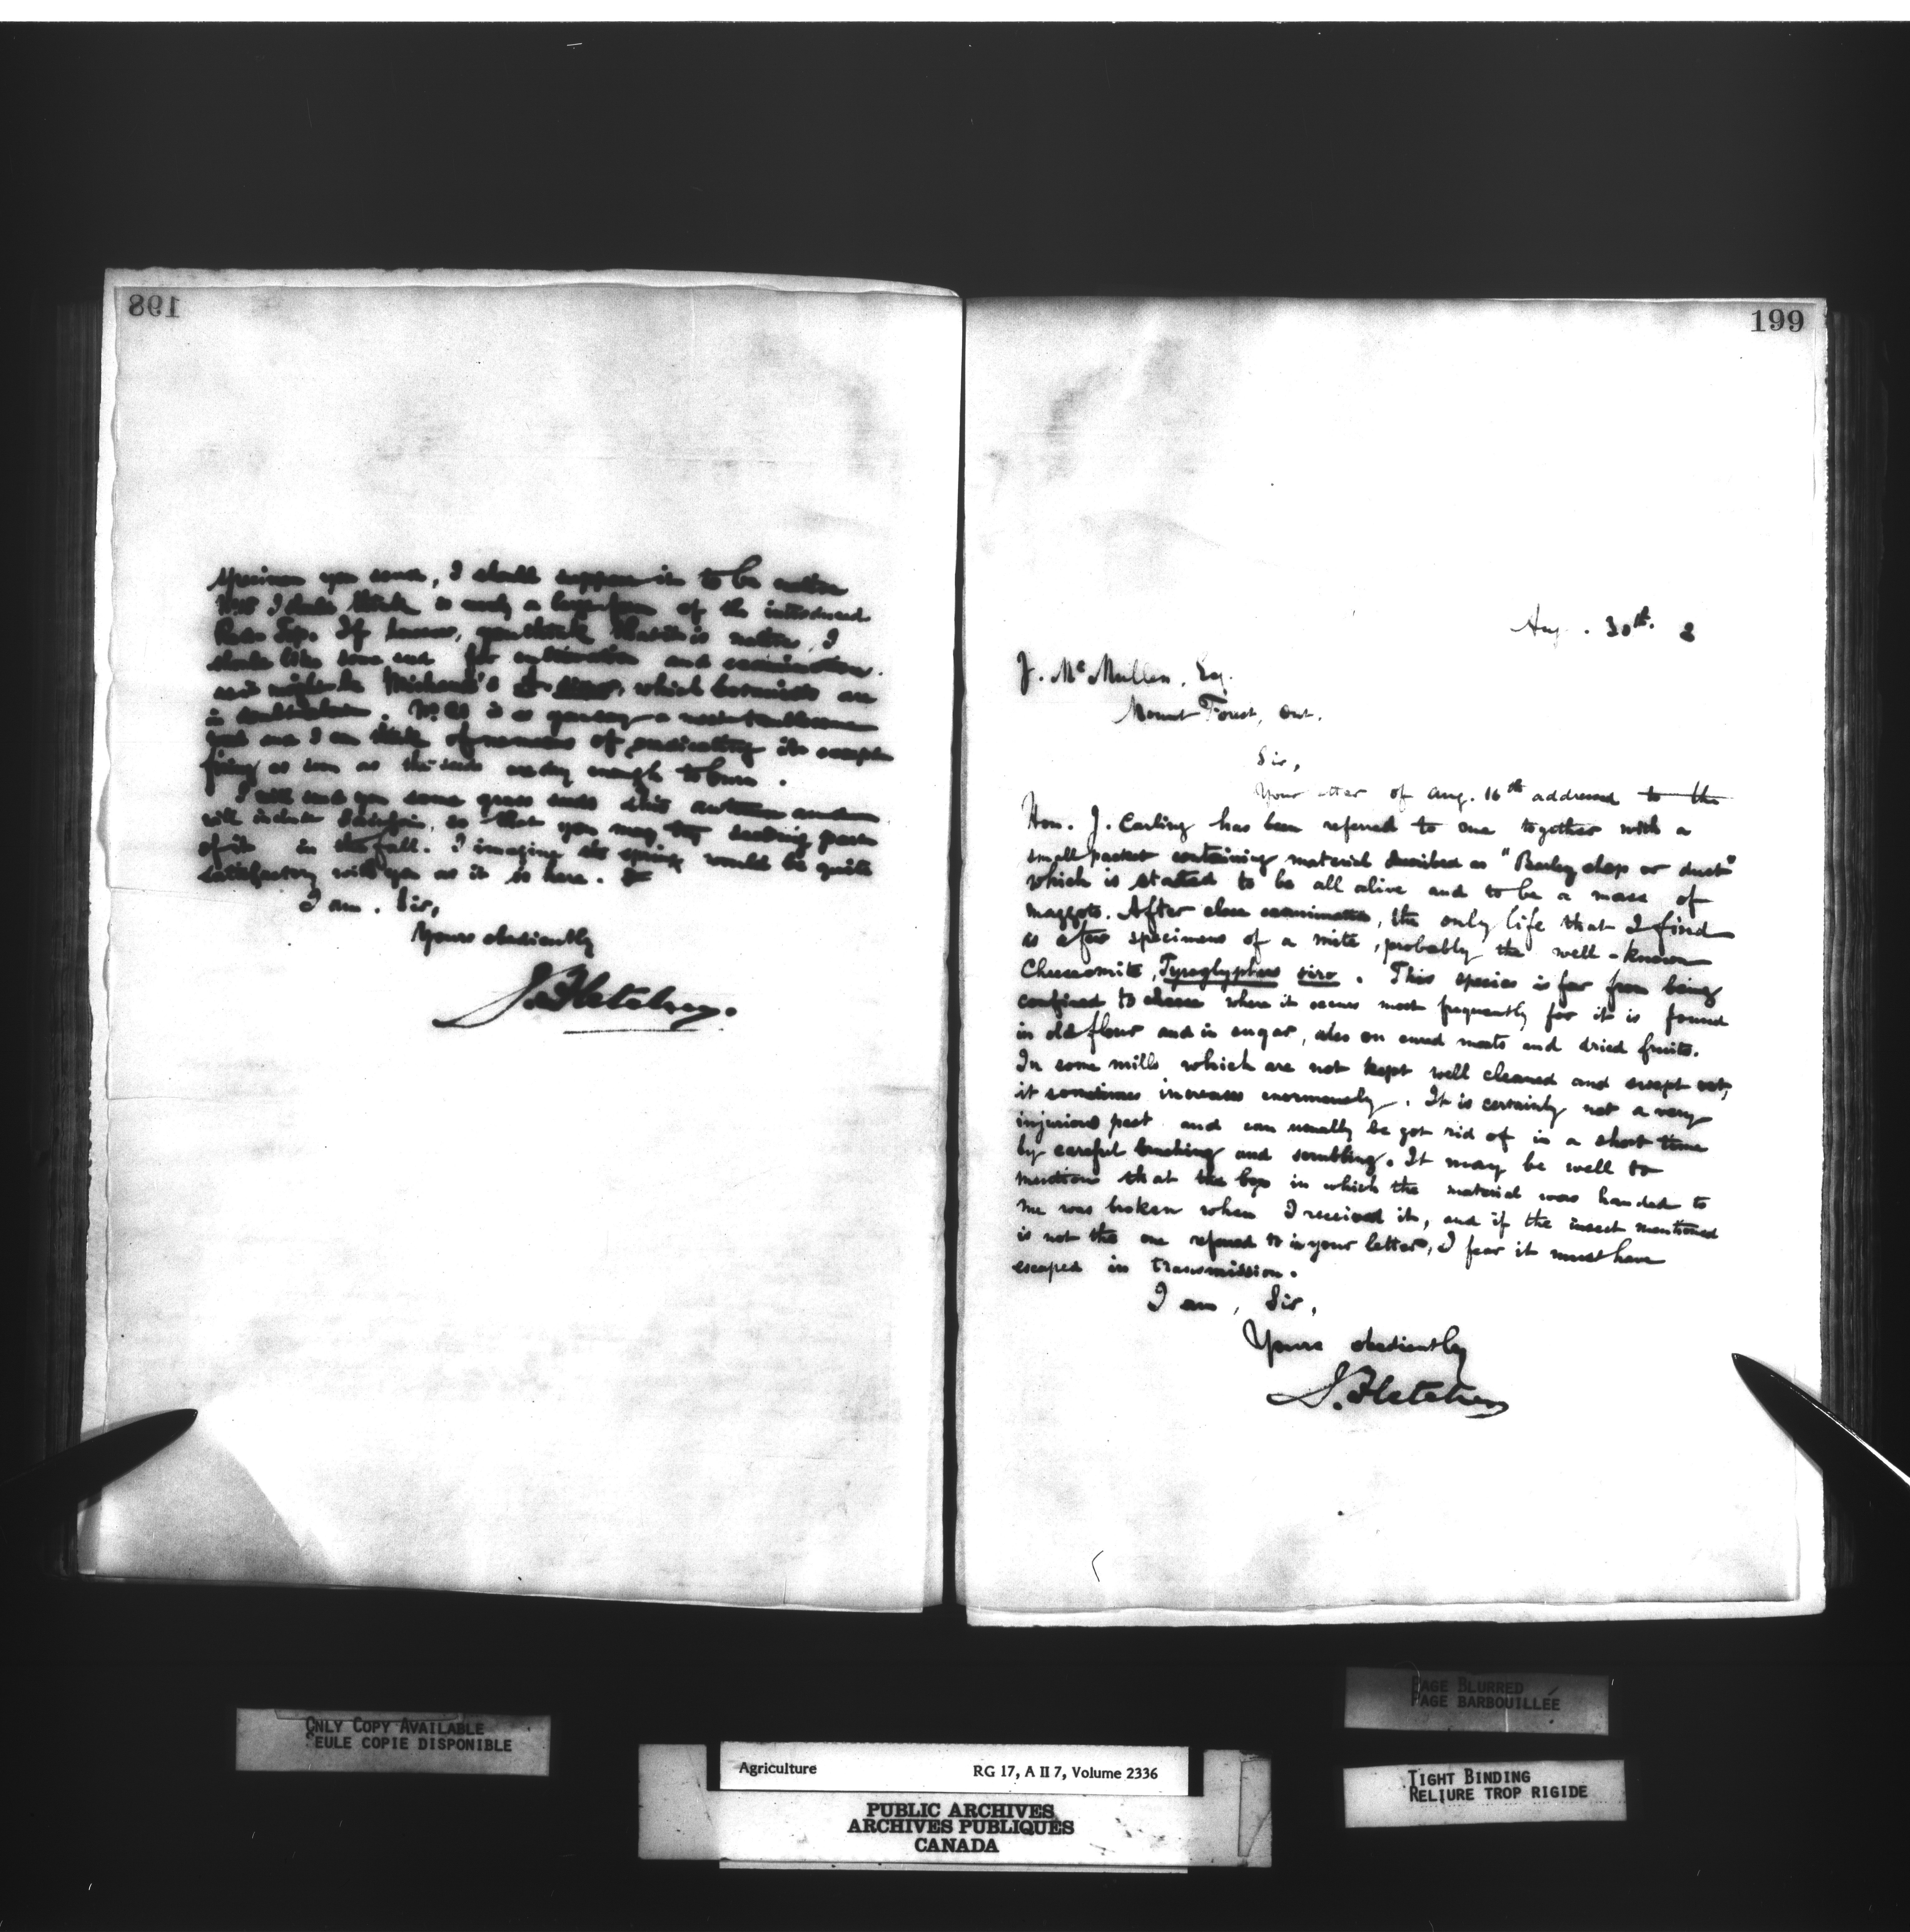 198
specimen you send, I should suppose it to be native
but I should think is only a form of the introduced
Red Top. If however, you think that it is native, I
should like some seed for cultivation and examination.
as it might be Michaux's which botanists are
in
and I know of no means of eradicating it except
firing as soon as the seeds are dry enough to burn.
I will send you some grass seeds this autumn and
will include Sainfoin, so that you may try seeding part
of it in the fall. I imagine the spring would be quite
satisfactory with you as it is here.
I am, Sir,
Yours obediently
J. Fletcher.
199
Aug. 30th. 2
J. McMullen, Esq.
Mount Forest, Ont.
Sir,
Your letter of Aug. 16th addressed to the
Hon. J. Carling has been referred to me together with a
small packet containing material described as "Barley chop or dust"
which is stated to be all alive and to be a mass of
maggots. After close examination, the only life that I find
is a few specimens of a mite, probably the well-known
Cheesemite, Tyroglyphus siro. This species is far from being
confined to cheese where it occurs most frequently for it is found
in old flour and in sugar, also on cured meats and dried fruits.
In some mills which are not kept well cleaned and swept out,
it sometimes increases enormously. It is certainly not a very
injurious pest and can usually be got rid of in a short time
by careful brushing and scrubbing. It may be well to
mention that the box in which the material was handed to
me was broken when I received it, and if the insect mentioned
is not the one referred to in your letter, I fear it must have
escaped in transmission.
I am, Sir,
Yours obediently
J. Fletcher
ONLY COPY AVAILABLE
SEULE COPIE DISPONIBLE
PAGE BLURRED
PAGE BARBOUILLÉE
TIGHT BINDING
RELIURE TROP RIGIDE
Agriculture RG 17, A II 7, Volume 2336
PUBLIC ARCHIVES
ARCHIVES PUBLIQUES
CANADA